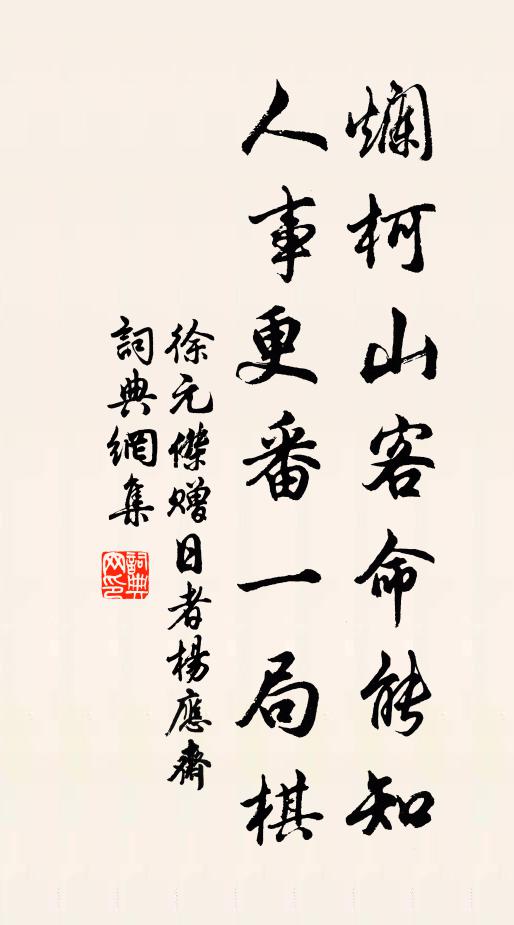 爛柯山客命能知
人事更番一局棋
徐元傑贈日者楊應齋
詞典網集
詞典網印